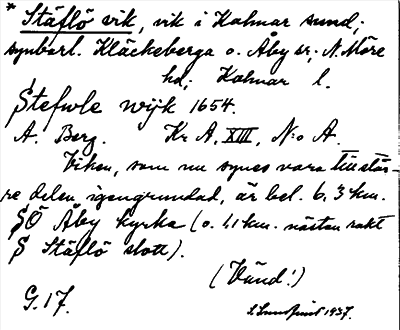 * Stäflö vik, vik i Kalmar sund;
synbarl. Kläckeberga o. Åby sr; N. Möre
hd; Kalmar l.
Stefwle wijk 1654.
A. Berg. Kr A, XIII, N:o A.
Viken, som nu synes vara till stör-
re delen igengrundad, är bel. 6,3 km.
SÖ Åby kyrka (o. 1,1 km. nästan rakt
S Stäflö slott).
(Vänd!)
G. 17. 1937.